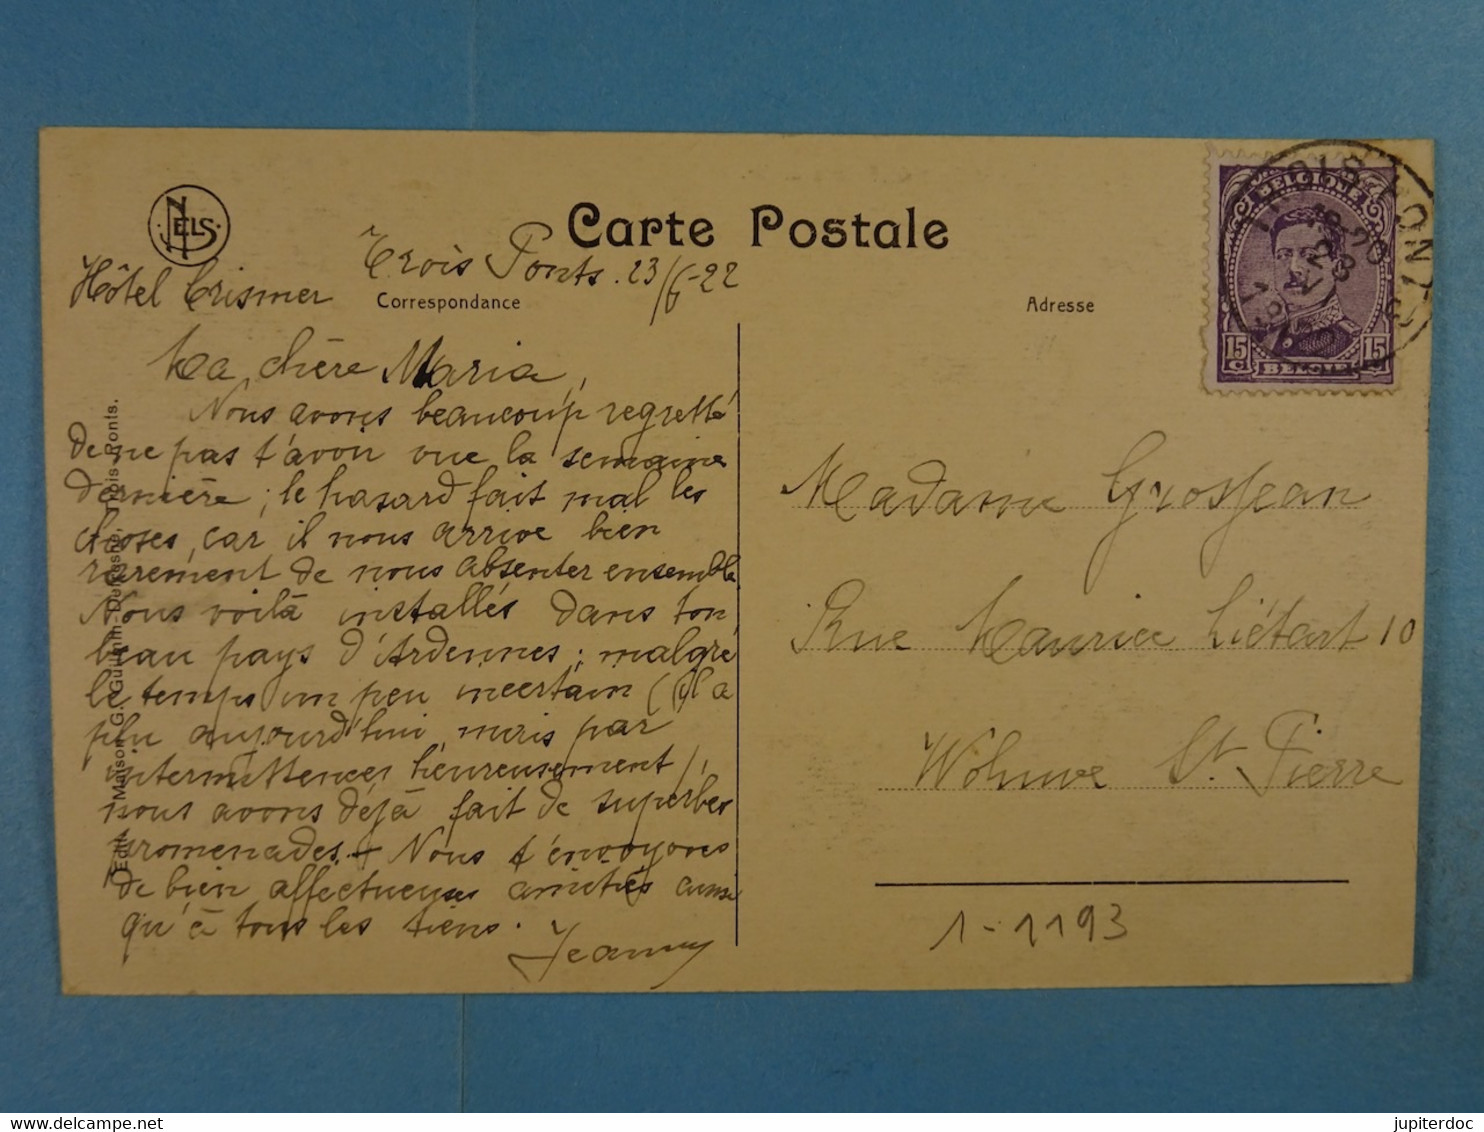 NELS
Carte Postale
Hôtel Crismer
Trois Ponts. 23/6-22
Correspondance
Adresse
BELGIQUE
15 c
15 c
BELGIË
TROIS-PONTS
Ma chère Maria,
Nous avons beaucoup regretté
de ne pas t'avoir vue la semaine
dernière ; le hasard fait mal les
choses, car il nous arrive bien
rarement de nous absenter ensemble.
Nous voilà installés dans ton
beau pays d'Ardennes ; malgré
le temps un peu incertain (il a
plu aujourd'hui mais par
intermittences heureusement),
nous avons déjà fait de superbes
promenades. - Nous t'envoyons
de bien affectueuses amitiés ainsi
qu'à tous les tiens.
Jeanny
Madame Grosjean
Rue Maurice Liétart 10
Wolumve St. Pierre
1-1193
Edit. Maison G.
Trois-Ponts.
delcampe.net
jupiterdoc